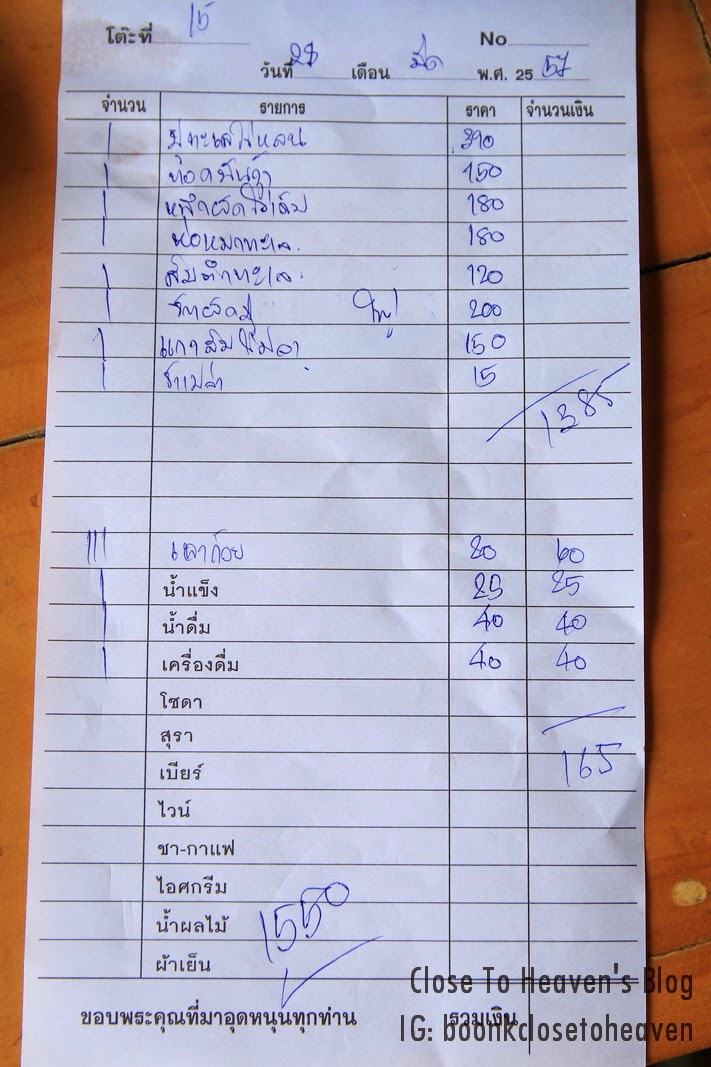 โต๊ะที่ 15 No
วันที่ 28 เดือน มีค พ.ศ. 25 57
จำนวน รายการ ราคา จำนวนเงิน
1 390
1 ทอดมันกุ้ง 150
1 180
1 ห่อหมกทะเล 180
1 ส้มตำทะเล 120
1 ใหญ่ 200
1 แกงส้ม 150
1 ข้าวเปล่า 15
1385
111 20 60
1 น้ำแข็ง 25 25
1 น้ำดื่ม 40 40
1 เครื่องดื่ม 40 40
โซดา
สุรา
165
เบียร์
ไวน์
ชา-กาแฟ
ไอศกรีม
น้ำผลไม้
1550
ผ้าเย็น
ขอบพระคุณที่มาอุดหนุนทุกท่าน รวมเงิน
Close To Heaven's Blog
IG: boonkclosetoheaven